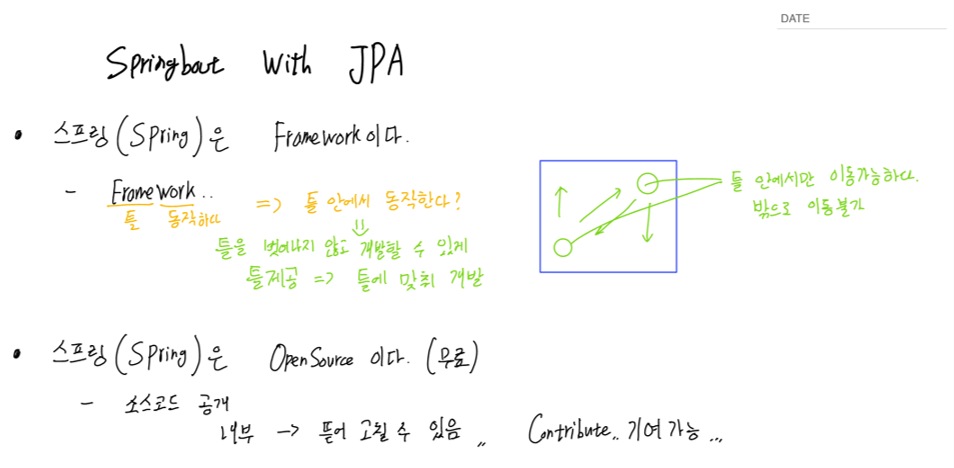 DATE
Springboot With JPA
• 스프링(Spring)은 Framework이다.
- Framework..
틀 동작하다
=> 틀 안에서 동작한다?
⇓
틀을 벗어나지 않고 개발할 수 있게
틀제공 => 틀에 맞춰 개발
틀 안에서만 이동가능하다.
밖으로 이동불가
• 스프링(Spring)은 OpenSource 이다. (무료)
- 소스코드 공개
내부 -> 뜯어 고칠 수 있음 ,, Contribute.. 기여 가능 ...